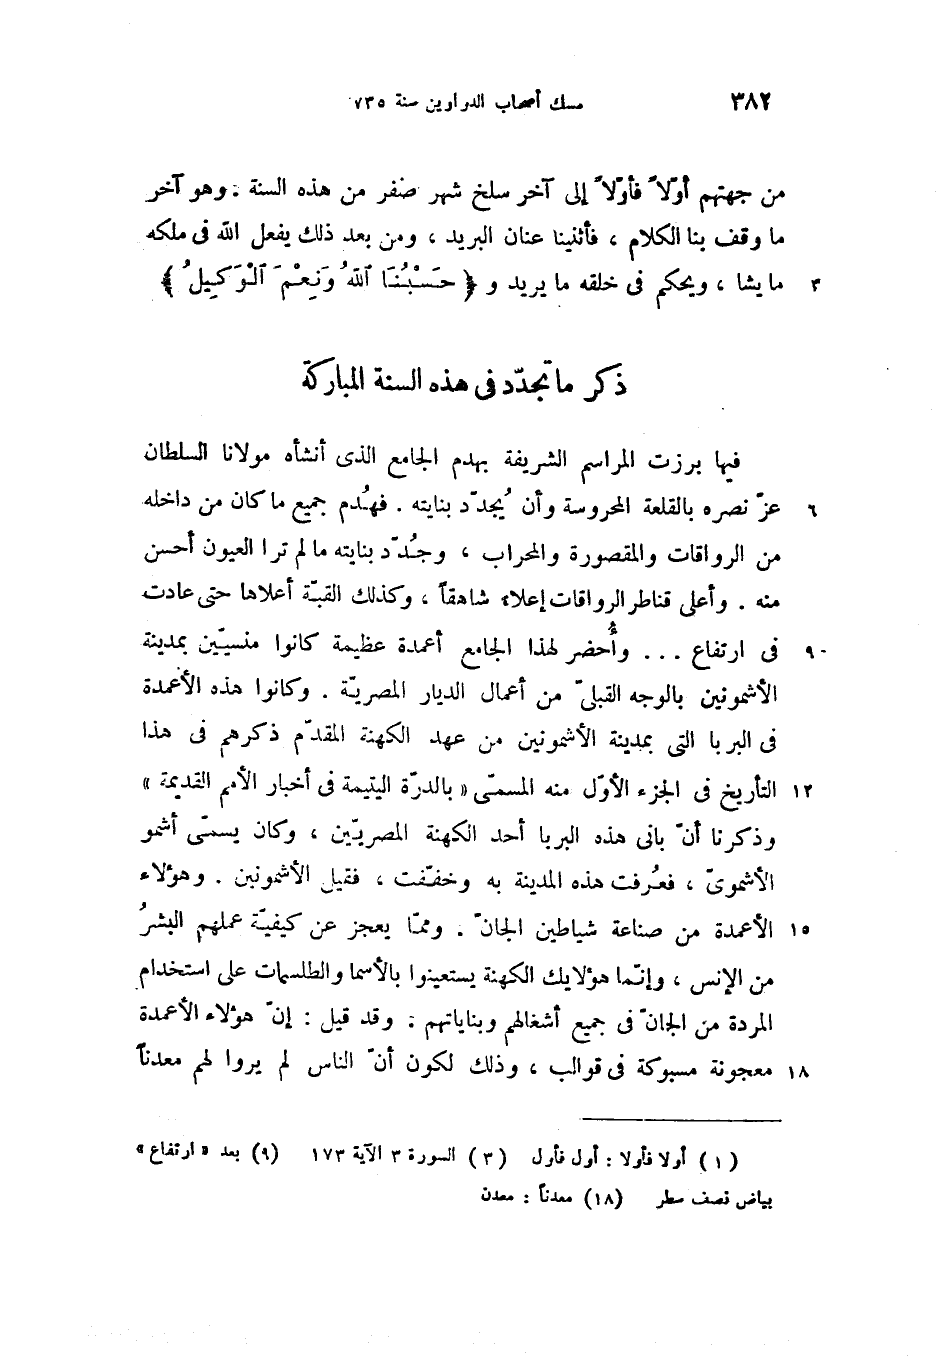 ٣٨٢ مسك أصحاب الدواوين سنة ٧٣٥
من جهتهم أوّلاً فأوّلاً إلى آخر سلخ شهر صفر من هذه السنة . وهو آخر
ما وقف بنا الكلام ، فأثنينا عنان البريد ، ومن بعد ذلك يفعل الله فى ملكه
٣ ما يشا ، ويحكم فى خلقه ما يريد و ﴿ حَسْبُنَا ٱللهُ وَنِعْمَ ٱلْوَكِيلُ ﴾
ذكر ما تجدّد فى هذه السنة المباركة
فيها برزت المراسم الشريفة بهدم الجامع الذى أنشأه مولانا السلطان
٦ عزّ نصره بالقلعة المحروسة وأن يُجدّد بنايته . فهُدم جميع ما كان من داخله
من الرواقات والمقصورة والمحراب ، وجُدّد بنايته ما لم ترا العيون أحسن
منه . وأعلى قناطر الرواقات إعلاء شاهقاً ، وكذلك القبّة أعلاها حتى عادت
٩ فى ارتفاع ... وأُحضر لهذا الجامع أعمدة عظيمة كانوا منسيّين بمدينة
الأشمونين بالوجه القبلىّ من أعمال الديار المصريّة . وكانوا هذه الأعمدة
فى البربا التى بمدينة الأشمونين من عهد الكهنة المقدّم ذكرهم فى هذا
١٢ التأريخ فى الجزء الأوّل منه المسمّى « بالدرّة اليتيمة فى أخبار الأمم القديمة »
وذكرنا أنّ بانى هذه البربا أحد الكهنة المصريّين ، وكان يسمّى أشمو
الأشموىّ ، فعُرفت هذه المدينة به وخفّفت ، فقيل الأشمونين . وهؤلاء
١٥ الأعمدة من صناعة شياطين الجانّ . وممّا يعجز عن كيفيّة عملهم البشرُ
من الإنس ، وإنّما هؤلايك الكهنة يستعينوا بالأسما والطلسمات على استخدام
المردة من الجانّ فى جميع أشغالهم وبناياتهم . وقد قيل : إنّ هؤلاء الأعمدة
١٨ معجونة مسبوكة فى قوالب ، وذلك لكون أنّ الناس لم يروا لهم معدناً
(١) أولا فأولا : أول فأول (٣) السورة ٣ الآية ١٧٣ (٩) بعد « ارتفاع »
بياض نصف سطر (١٨) معدناً : معدن